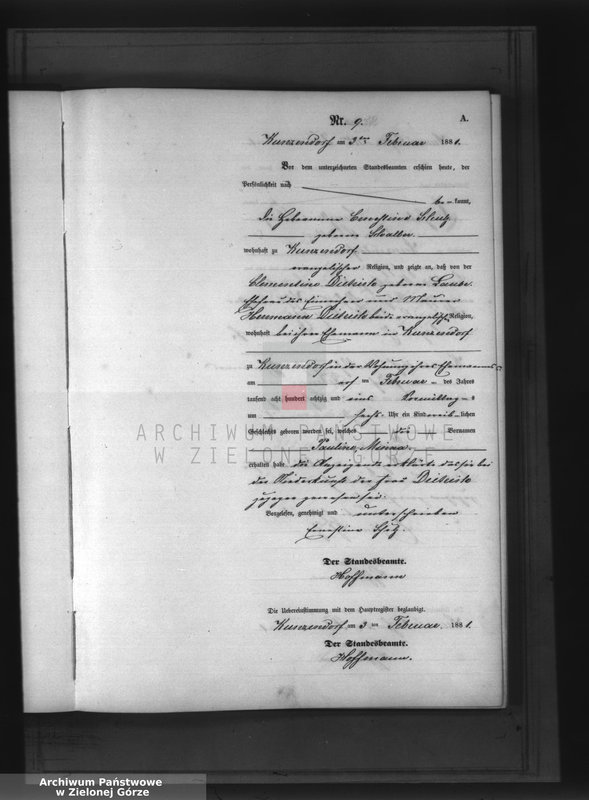 A.
Nr. 9.
Kunzendorf am 3ten Februar 1881.
Vor dem unterzeichneten Standesbeamten erschien heute, der
Persönlichkeit nach
be = kannt,
die Hebamme Ernestine Schulz
geborne
wohnhaft zu Kunzendorf
evangelischer Religion, und zeigte an, daß von der
Clementine Dietrich geborne Laube
Ehefrau des und Maurer
Hermann Dietrich beide evangelischer Religion,
wohnhaft bei ihrem Ehemann in Kunzendorf
zu Kunzendorf in der Wohnung ihres Ehemannes
am ersten Februar des Jahres
tausend acht hundert achtzig und eins Vormittags
um sechs Uhr ein Kind weib=lichen
Geschlechts geboren worden sei, welches die Vornamen
Pauline Minna
erhalten habe die Anzeigende erklärte daß sie bei
der Niederkunft der Frau Dietrich
zugegen gewesen sei.
Vorgelesen, genehmigt und unterschrieben
Ernestine
Der Standesbeamte.
Hoffmann
Die Uebereinstimmung mit dem Hauptregister beglaubigt.
Kunzendorf am 3 ten Februar 1881.
Der Standesbeamte.
Hoffmann.
ARCHIWUM PAŃSTWOWE
W ZIELONEJ GÓRZE
Archiwum Państwowe
w Zielonej Górze